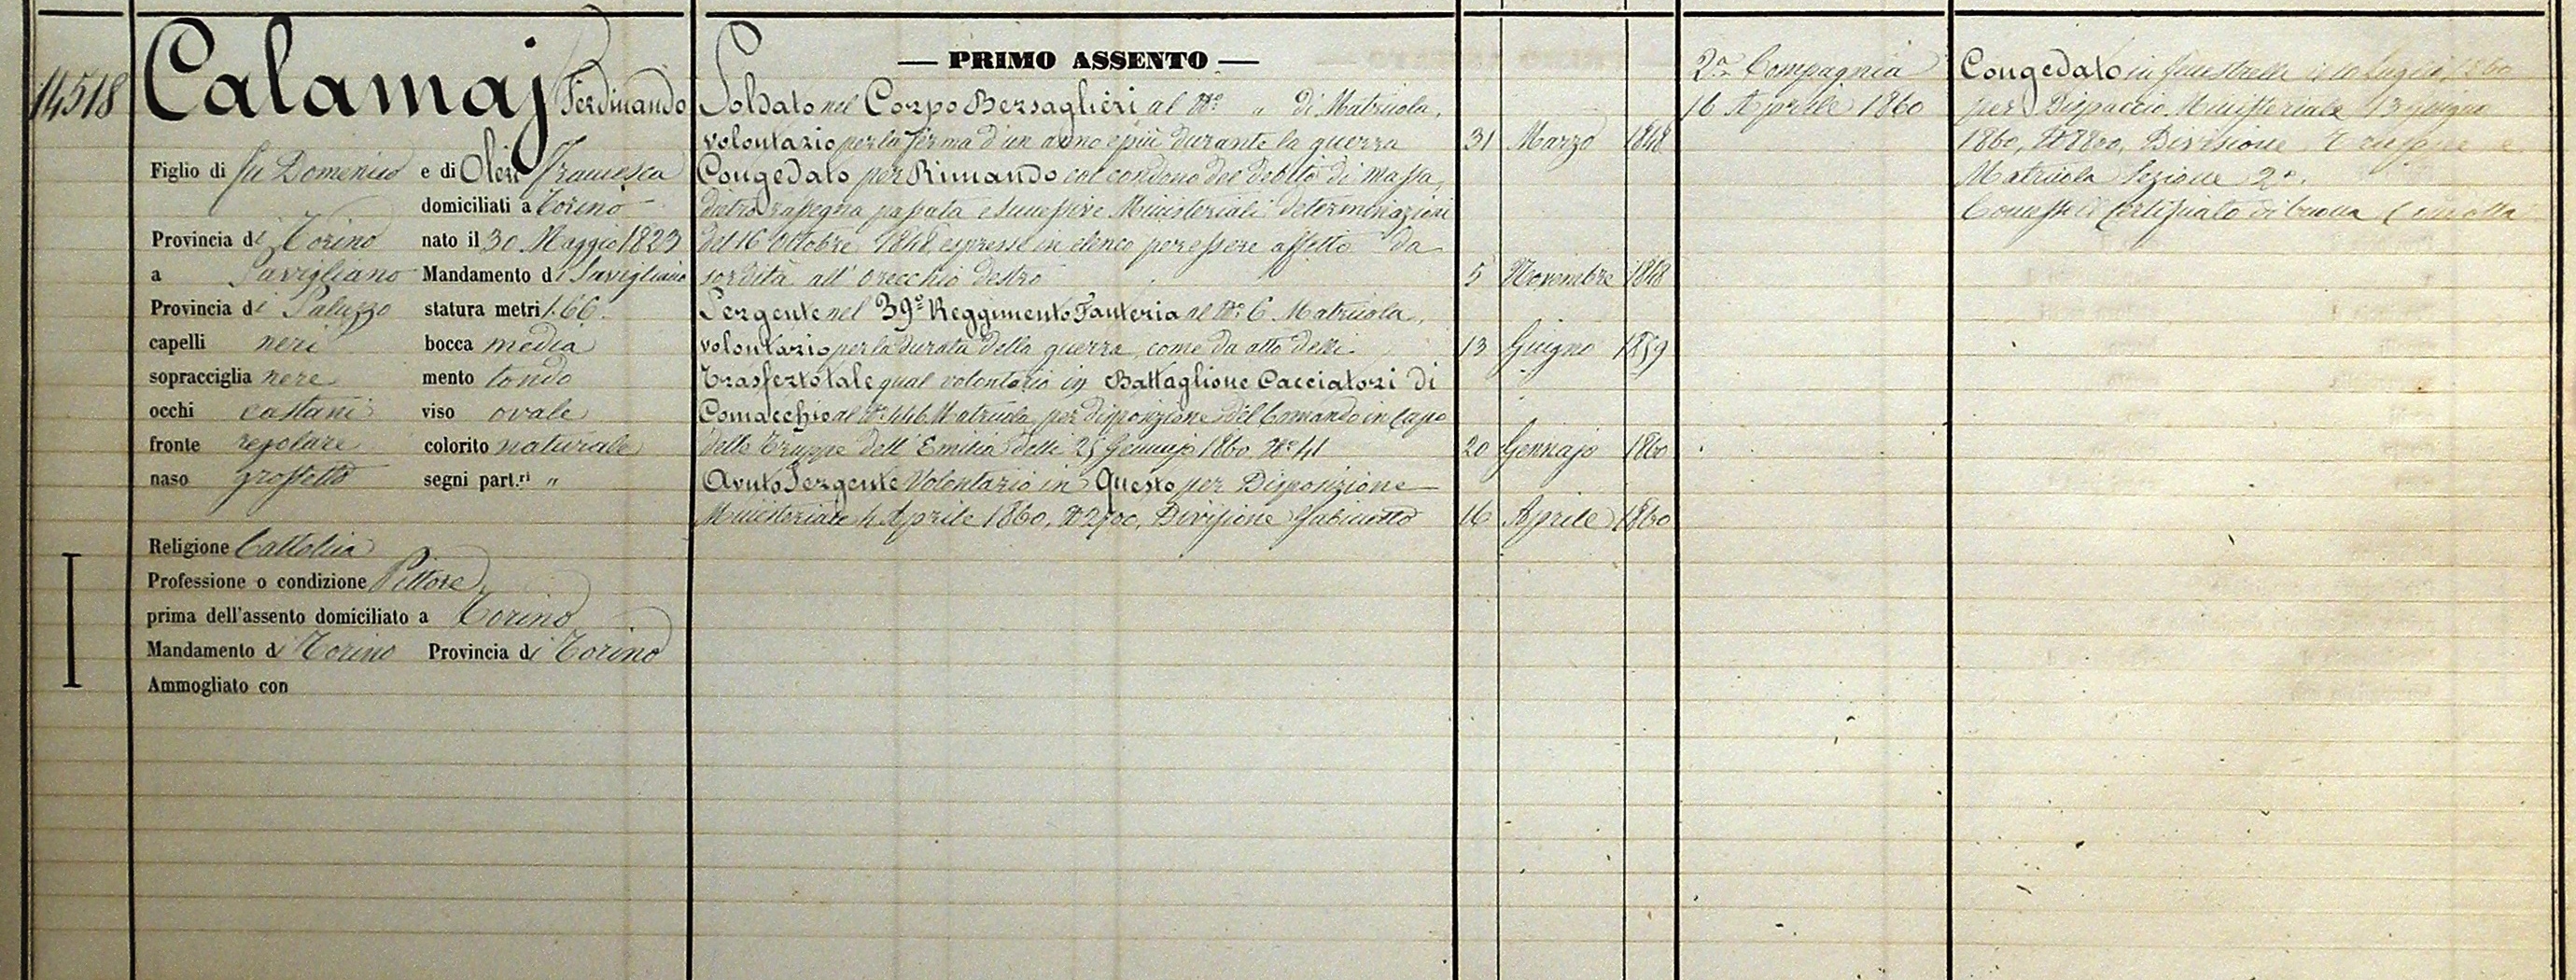 14518
Calamaj Ferdinando
Figlio di fu Domenico e di Oleri Francesca
domiciliati a Torino
Provincia di Torino nato il 30 Maggio 1823
a Savigliano Mandamento di Savigliano
Provincia di Saluzzo statura metri 1.66.
capelli neri bocca media
sopracciglia nere mento tondo
occhi castani viso ovale
fronte regolare colorito naturale
naso grossetto segni part.ri "
Religione Cattolica
Professione o condizione Pittore
prima dell'assento domiciliato a Torino
Mandamento di Torino Provincia di Torino
Ammogliato con
— PRIMO ASSENTO —
Soldato nel Corpo Bersaglieri al No " di Matricola,
volontario per la ferma d'un anno e più durante la guerra 31 Marzo 1848
Congedato per Rimando col condono del debito di massa,
dietro rassegna passata e successive Ministeriali determinazioni
del 16 Ottobre 1848 espresse in elenco per essere affetto da
sordità all'orecchio destro 5 Novembre 1848
Sergente nel 39o Reggimento Fanteria al No 6 Matricola,
volontario per la durata della guerra, come da atto delli 13 Giugno 1859
Trasferto tale qual volontario in Battaglione Cacciatori di
Comacchio al No 446 Matricola, per disposizione del Comando in Capo
delle Truppe dell'Emilia delli 25 Gennajo 1860 No 41 20 Gennajo 1860
Avuto Sergente Volontario in Questo per Disposizione
Ministeriale 4 Aprile 1860, No 2700, Divisione Gabinetto 16 Aprile 1860
2a Compagnia
16 Aprile 1860
Congedato in Fenestrelle il 10 Luglio 1860
per Dispaccio Ministeriale 13 Giugno
1860, No 8800, Divisione Truppe e
Matricola Sezione 2a.
Concesso il Certificato di buona Condotta